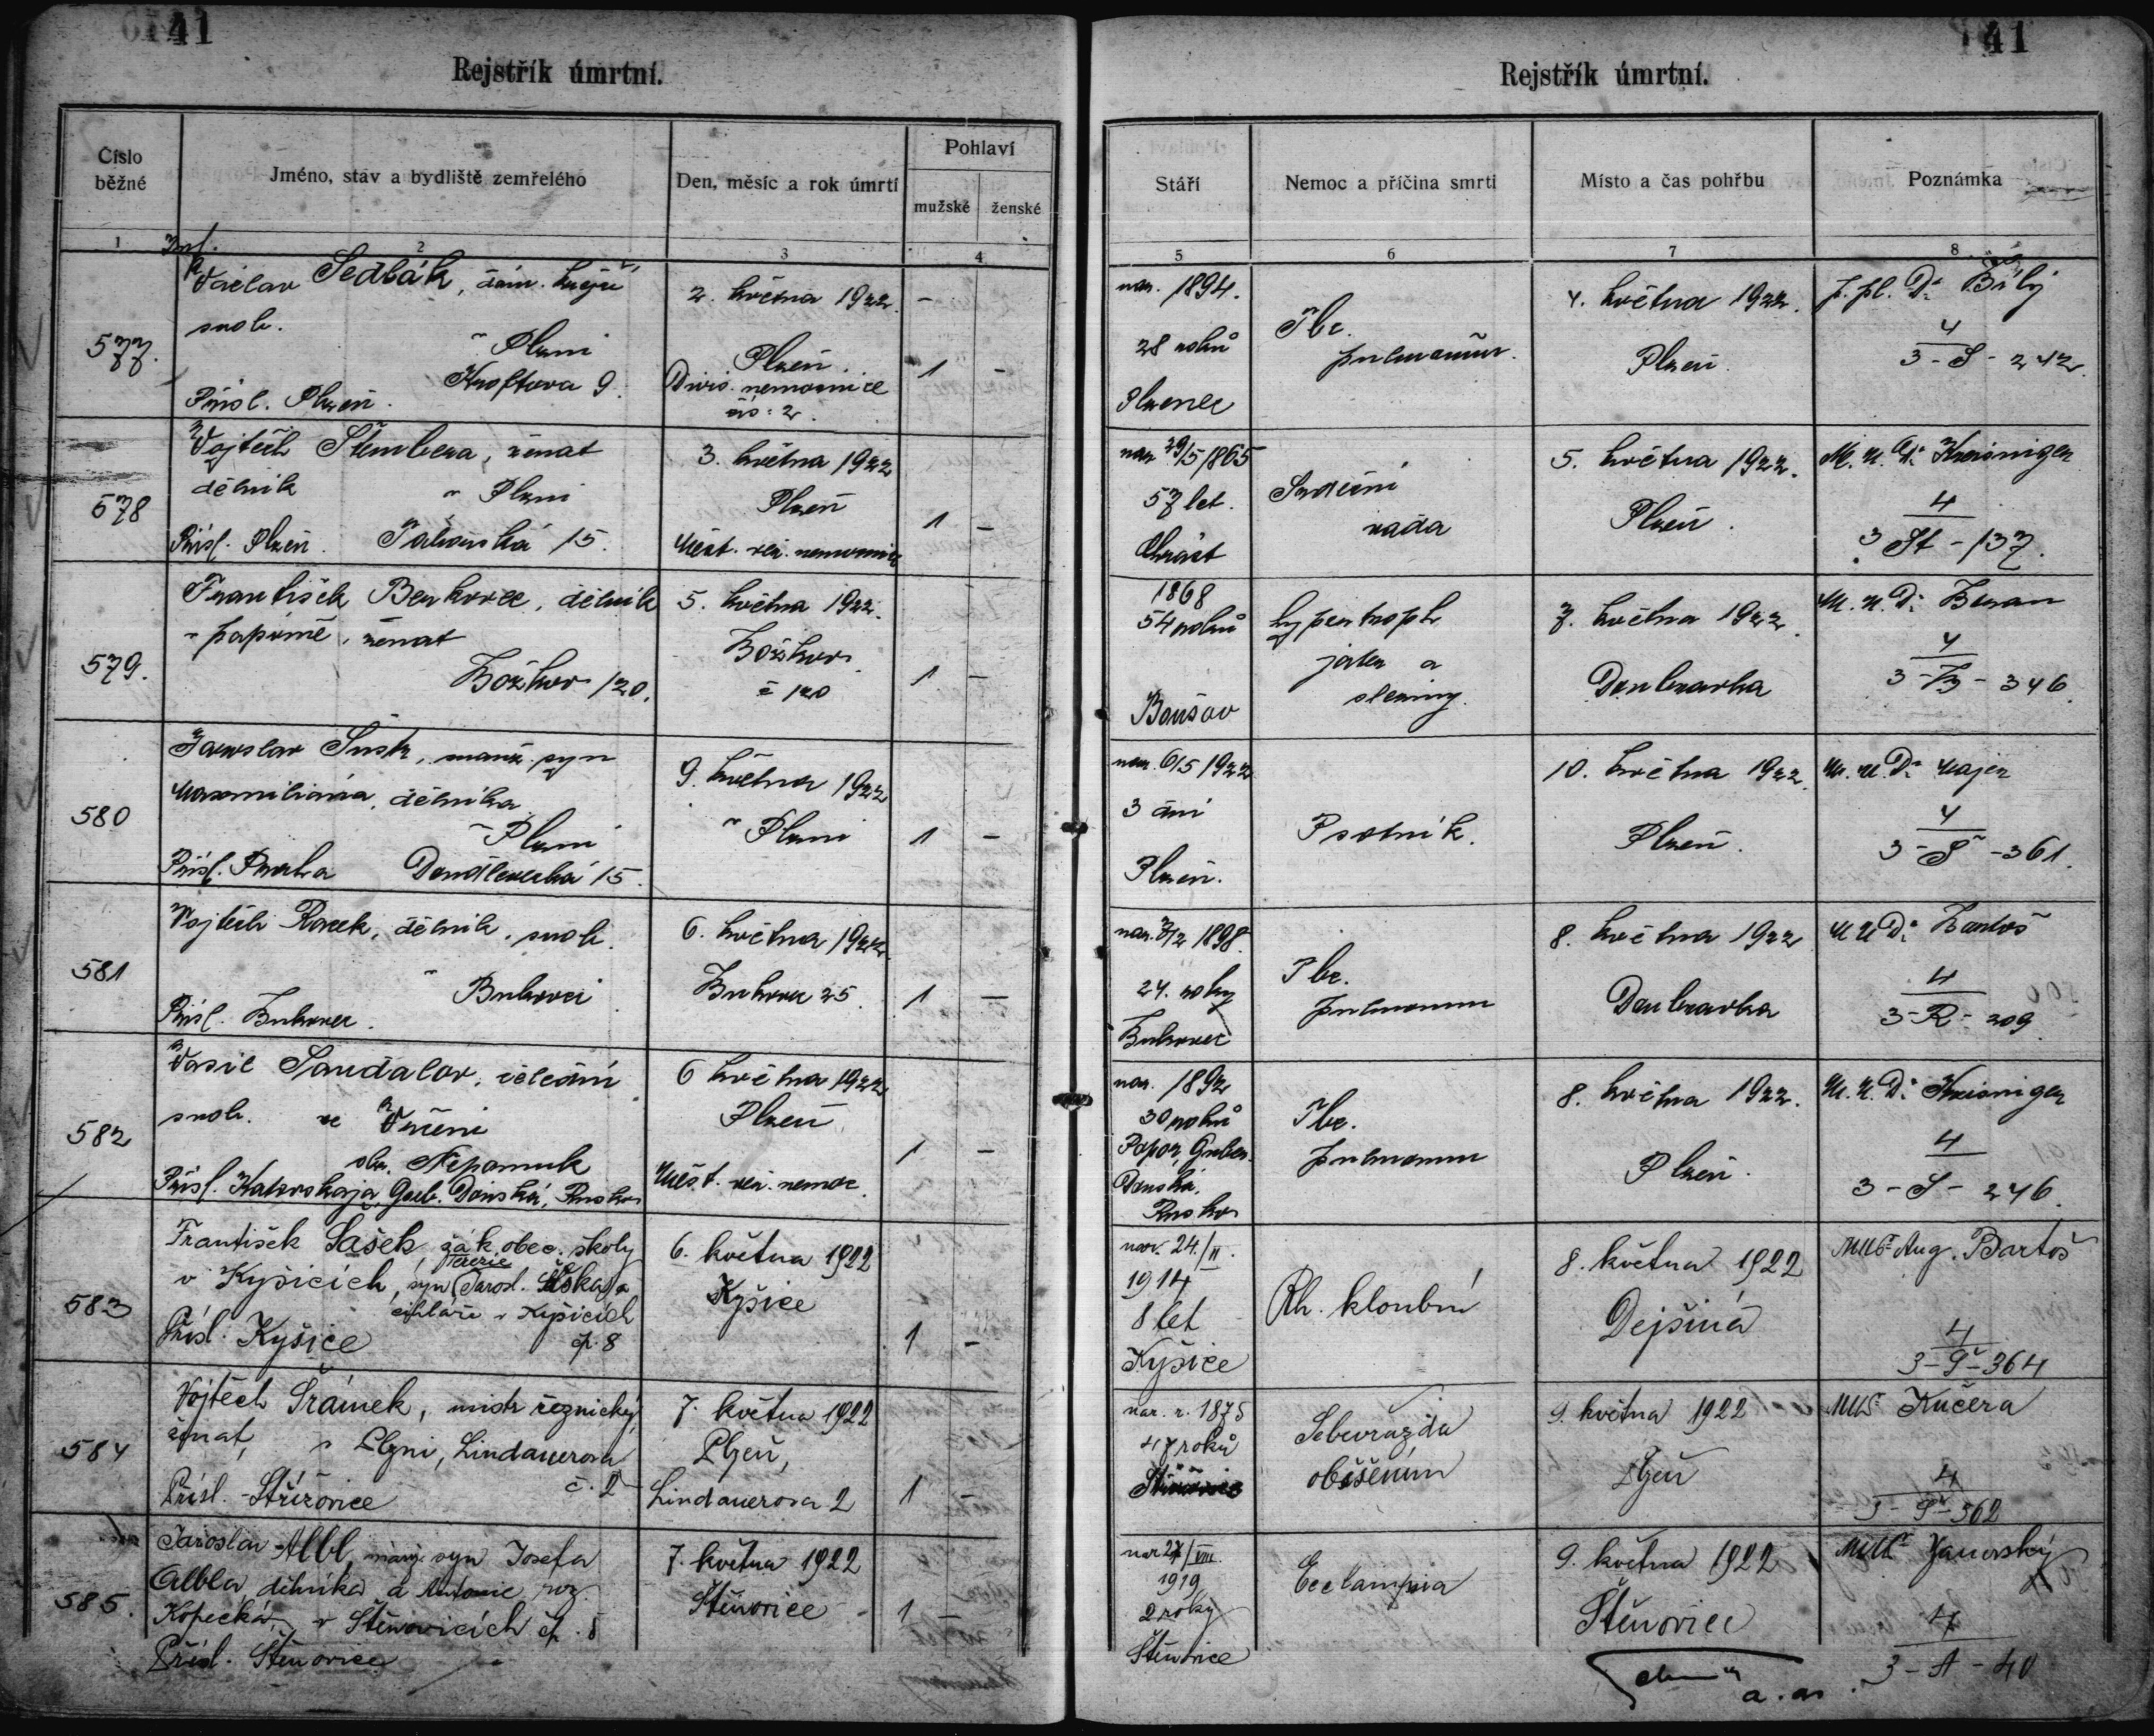 41
Rejstřík úmrtní.
Číslo běžné
Jméno, stav a bydliště zemřelého
Den, měsíc a rok úmrtí
Pohlaví
mužské
ženské
1
2
3
4
577.
Václav Sedlák,
svob.
v Plzni
9.
Přísl. Plzeň.
2. května 1922.
Plzeň.
Divis. nemocnice
čís. 2.
1 -
578
Vojtěch Štembera, ženat
dělník v Plzni
Přísl. Plzeň. Táborská 15.
3. května 1922
Plzeň
Měst. nemocnice
1 -
579.
František Benkovec, dělník
v papírně, ženat
Božkov 120.
5. května 1922.
Božkov
č 120
1 -
580
Jaroslav Šustr, manž. syn
Maxmiliána, dělníka
v Plzni
Přísl. Praha Doudlevecká 15.
9. května 1922
v Plzni
1 -
581
Vojtěch Racek, dělník, svob.
v Bukovci
Přísl. Bukovec.
6. května 1922.
Bukovec 25.
1 -
582
Vasil Sandalov,
svob. ve
okr. Nepomuk
Přísl. Gub. Donská, Rusko
6 května 1922
Plzeň
Měst. nemoc.
1 -
583
František Šašek žák obec. školy
v Kyšicích, syn Jarosl. Šaška
cihláře v Kyšicích
Přísl. Kyšice čp. 8
6. května 1922
Kyšice
1 -
584
Vojtěch Šrámek, mistr řeznický,
ženat, v Plzni, Lindauerova
č. 2
Přísl. Střížovice
7. května 1922
Plzeň,
Lindauerova 2
1 -
585.
Jaroslav Albl, manž. syn Josefa
Albla dělníka a Antonie roz.
Kopecká, v Štěnovicích čp. 8
Přísl. Štěnovice
7. května 1922
Štěnovice
1 -
41
Rejstřík úmrtní.
Stáří
Nemoc a příčina smrti
Místo a čas pohřbu
Poznámka
5
6
7
8
nar. 1894.
28 roků
Plzenec
Tbc.
pulmonum.
4. května 1922.
Plzeň.
Dr Bílý
4
3 - S - 242.
nar. 29/5 1865
57 let.
Chrást
Srdeční
vada
5. května 1922.
Plzeň.
M. U. Dr Kreisinger
4
3 St - 137.
1868
54 roků
hypertroph
jater a
sleziny.
7. května 1922.
Doubravka
M. U. Dr Beran
4
3 - B - 346
nar. 6/5 1922
3 dni
Plzeň.
Psotník.
10. května 1922.
Plzeň.
M. U. Dr Majer
4
3 - Š - 361.
nar. 1898.
24. roky
Bukovec
Tbc.
pulmonum
8. května 1922
Doubravka
M U Dr Bartoš
4
3 - R - 209
nar. 1892
30 roků
Donská,
Rusko
Tbc.
pulmonum
8. května 1922.
Plzeň.
M. U. Dr Kreisinger
4
3 - S - 246.
nar. 24./II.
1914
8 let
Kyšice
Rh. kloubní
8. května 1922
Dejšina
MUDr Aug. Bartoš
4
3 - Š - 364
nar. r. 1875
47 roků
Sebevražda
oběšením
9. května 1922
Plzeň
MUDr Kučera
4
3 - Š - 362
nar. 27/VIII.
1919
2 roky
Štěnovice
Eclampsia
9. května 1922
Štěnovice
MUDr Janovský
4
3 - A - 40